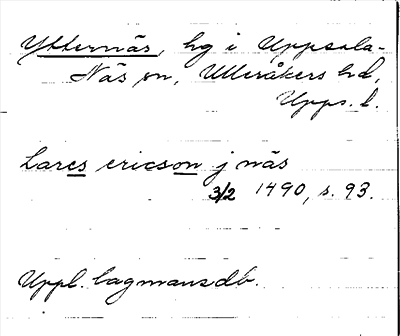 Ytternäs, hg i Uppsala-
Näs sn, Ulleråkers hd,
Upps. l.
Lares ericson j näs
3/2 1490, s. 93.
Uppl. lagmansdb.